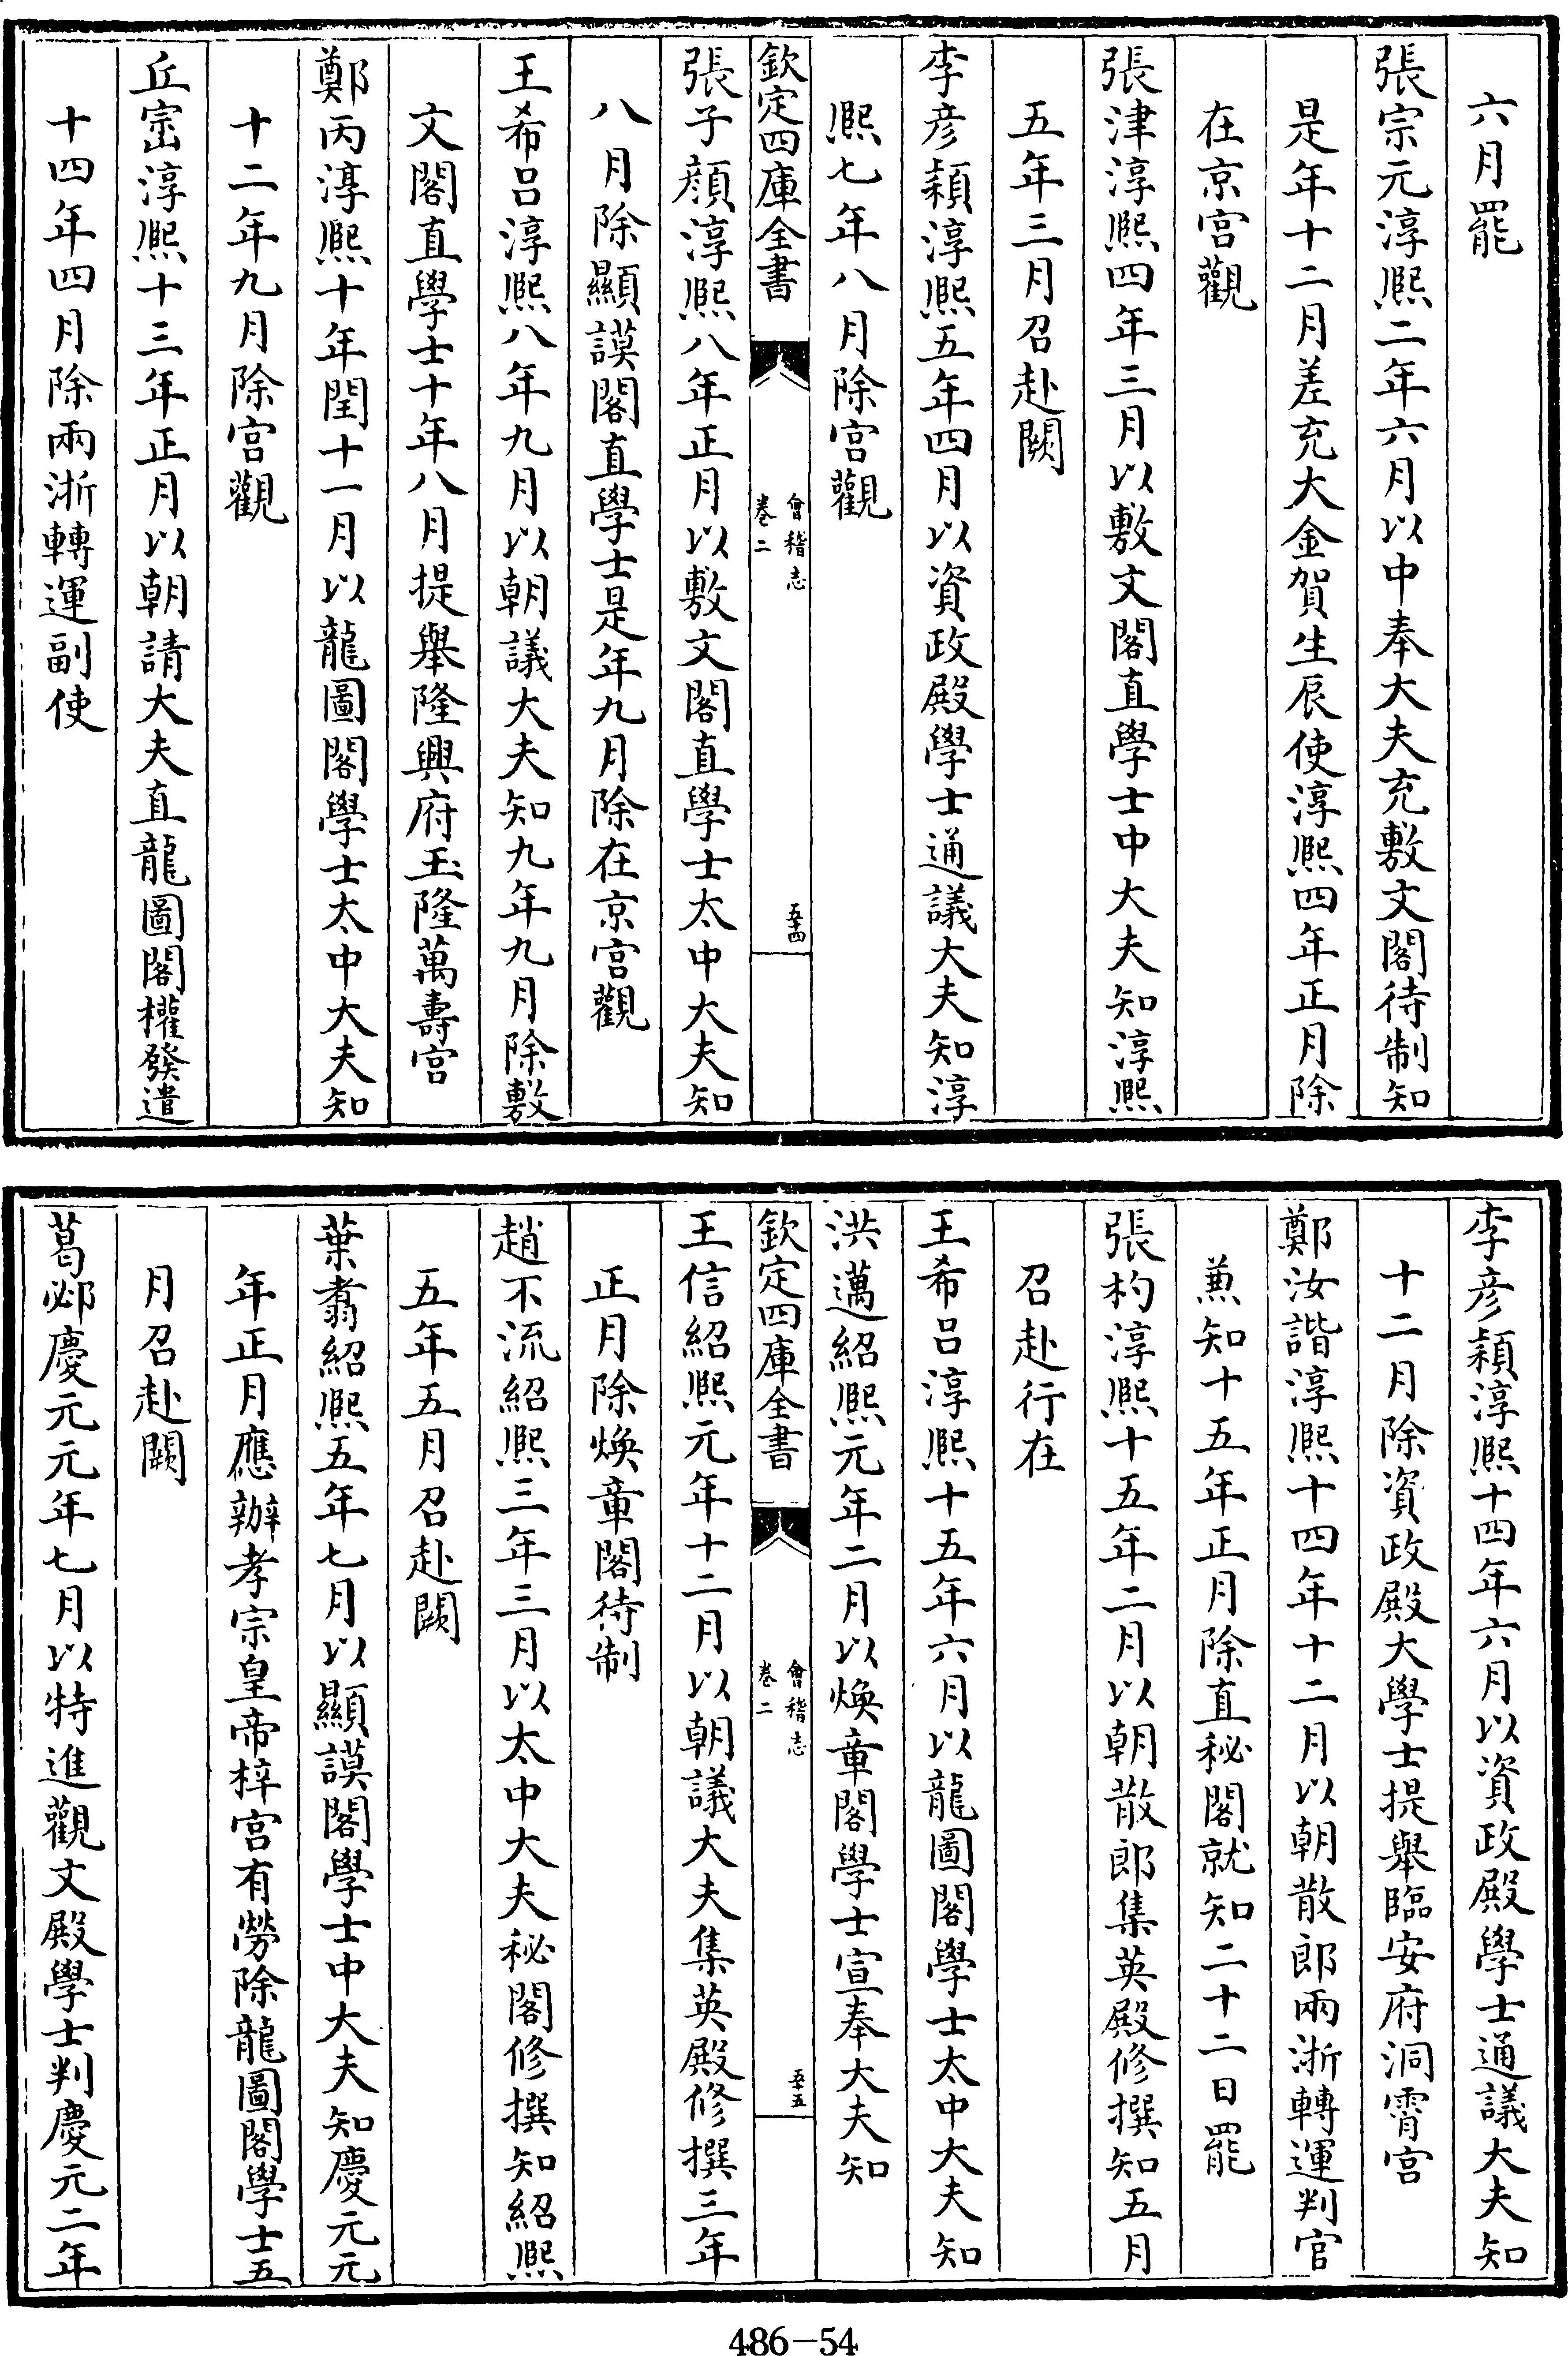 六月罷
張宗元淳熙二年六月以中奉大夫充敷文閣待制知
是年十二月差充大金賀生辰使淳熙四年正月除
在京宮觀
張津淳熙四年三月以敷文閣直學士中大夫知淳熙
五年三月召赴闕
李彦穎淳熙五年四月以資政殿學士通議大夫知淳
熙七年八月除宮觀
欽定四庫全書
會稽志
卷二
五十四
張子顔淳熙八年正月以敷文閣直學士太中大夫知
八月除顯謨閣直學士是年九月除在京宮觀
王希吕淳熙八年九月以朝議大夫知九年九月除敷
文閣直學士十年八月提舉隆興府玉隆萬壽宮
鄭丙淳熙十年閏十一月以龍圖閣學士太中大夫知
十二年九月除宮觀
丘崈淳熙十三年正月以朝請大夫直龍圖閣權發遣
十四年四月除兩浙轉運副使
李彦穎淳熙十四年六月以資政殿學士通議大夫知
十二月除資政殿大學士提舉臨安府洞霄宮
鄭汝諧淳熙十四年十二月以朝散郎兩浙轉運判官
兼知十五年正月除直秘閣就知二十二日罷
張杓淳熙十五年二月以朝散郎集英殿修撰知五月
召赴行在
王希吕淳熙十五年六月以龍圖閣學士太中大夫知
洪邁紹熙元年二月以煥章閣學士宣奉大夫知
欽定四庫全書
會稽志
卷二
五十五
王信紹熙元年十二月以朝議大夫集英殿修撰三年
正月除煥章閣待制
趙不流紹熙三年三月以太中大夫秘閣修撰知紹熙
五年五月召赴闕
葉翥紹熙五年七月以顯謨閣學士中大夫知慶元元
年正月應辦孝宗皇帝梓宮有勞除龍圖閣學士五
月召赴闕
葛邲慶元元年七月以特進觀文殿學士判慶元二年
486-54